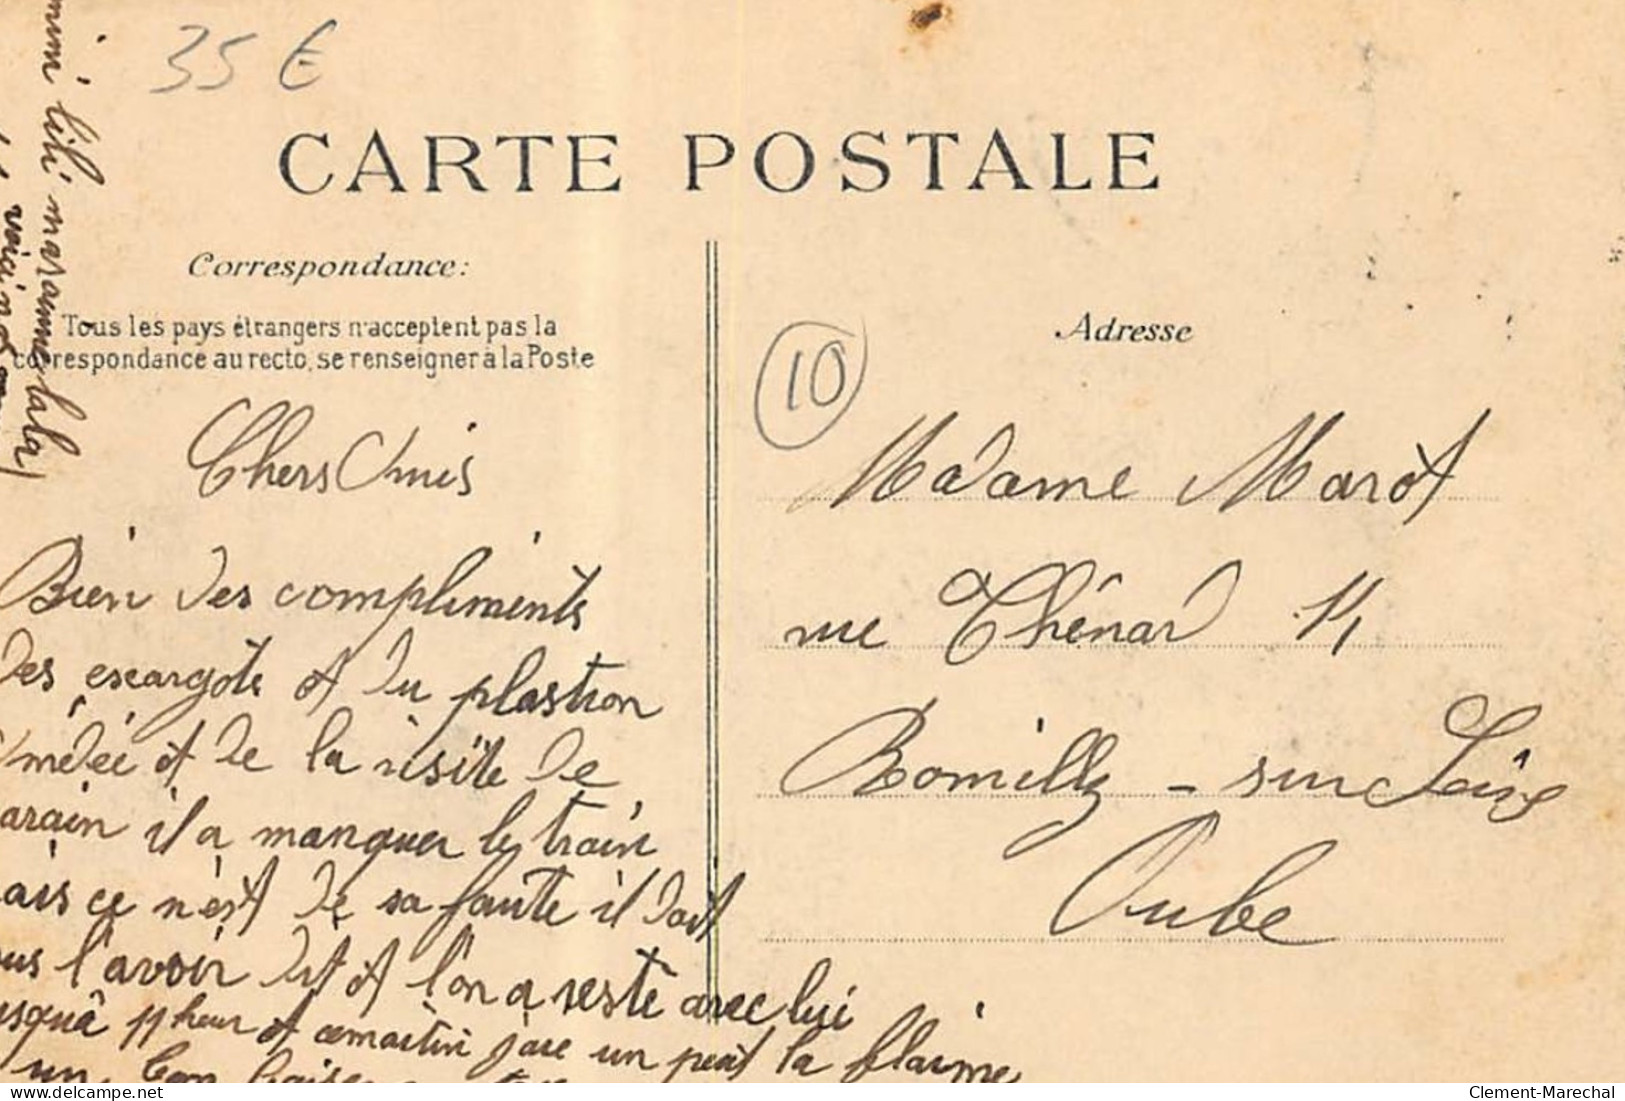 35 €
CARTE POSTALE
Correspondance:
Tous les pays étrangers n'acceptent pas la
correspondance au recto, se renseigner à la Poste
Chers Amis
Bien des compliments
des escargots et du plastron
et de la visite de
il a manquer le train
ce n'est de sa faute il doit
l'avoir dit et l'on a resté avec lui
11 heur et un peut la
un
lili
voici
10
Adresse
Madame Marot
rue Thénard 11
Romilly - sur Seine
Aube
Clement-Marechal